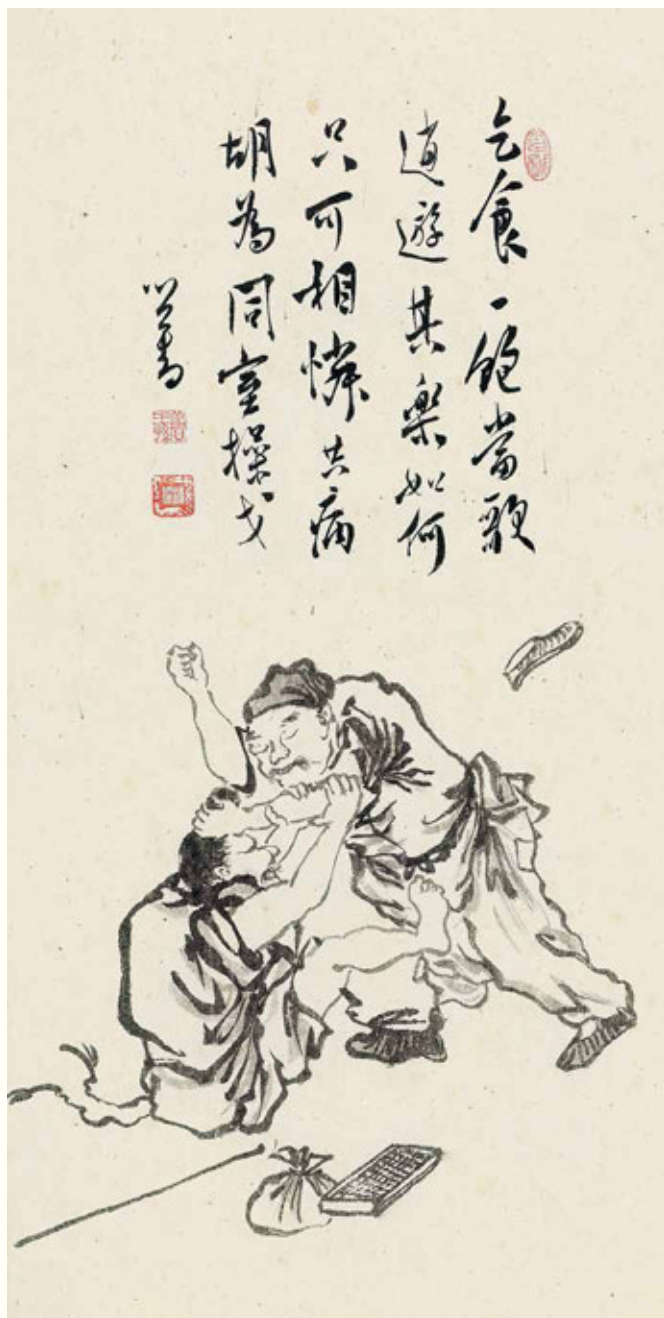 乞食一飽當歌
逍遊其樂如何
只可相憐共病
胡為同室操戈
心畬